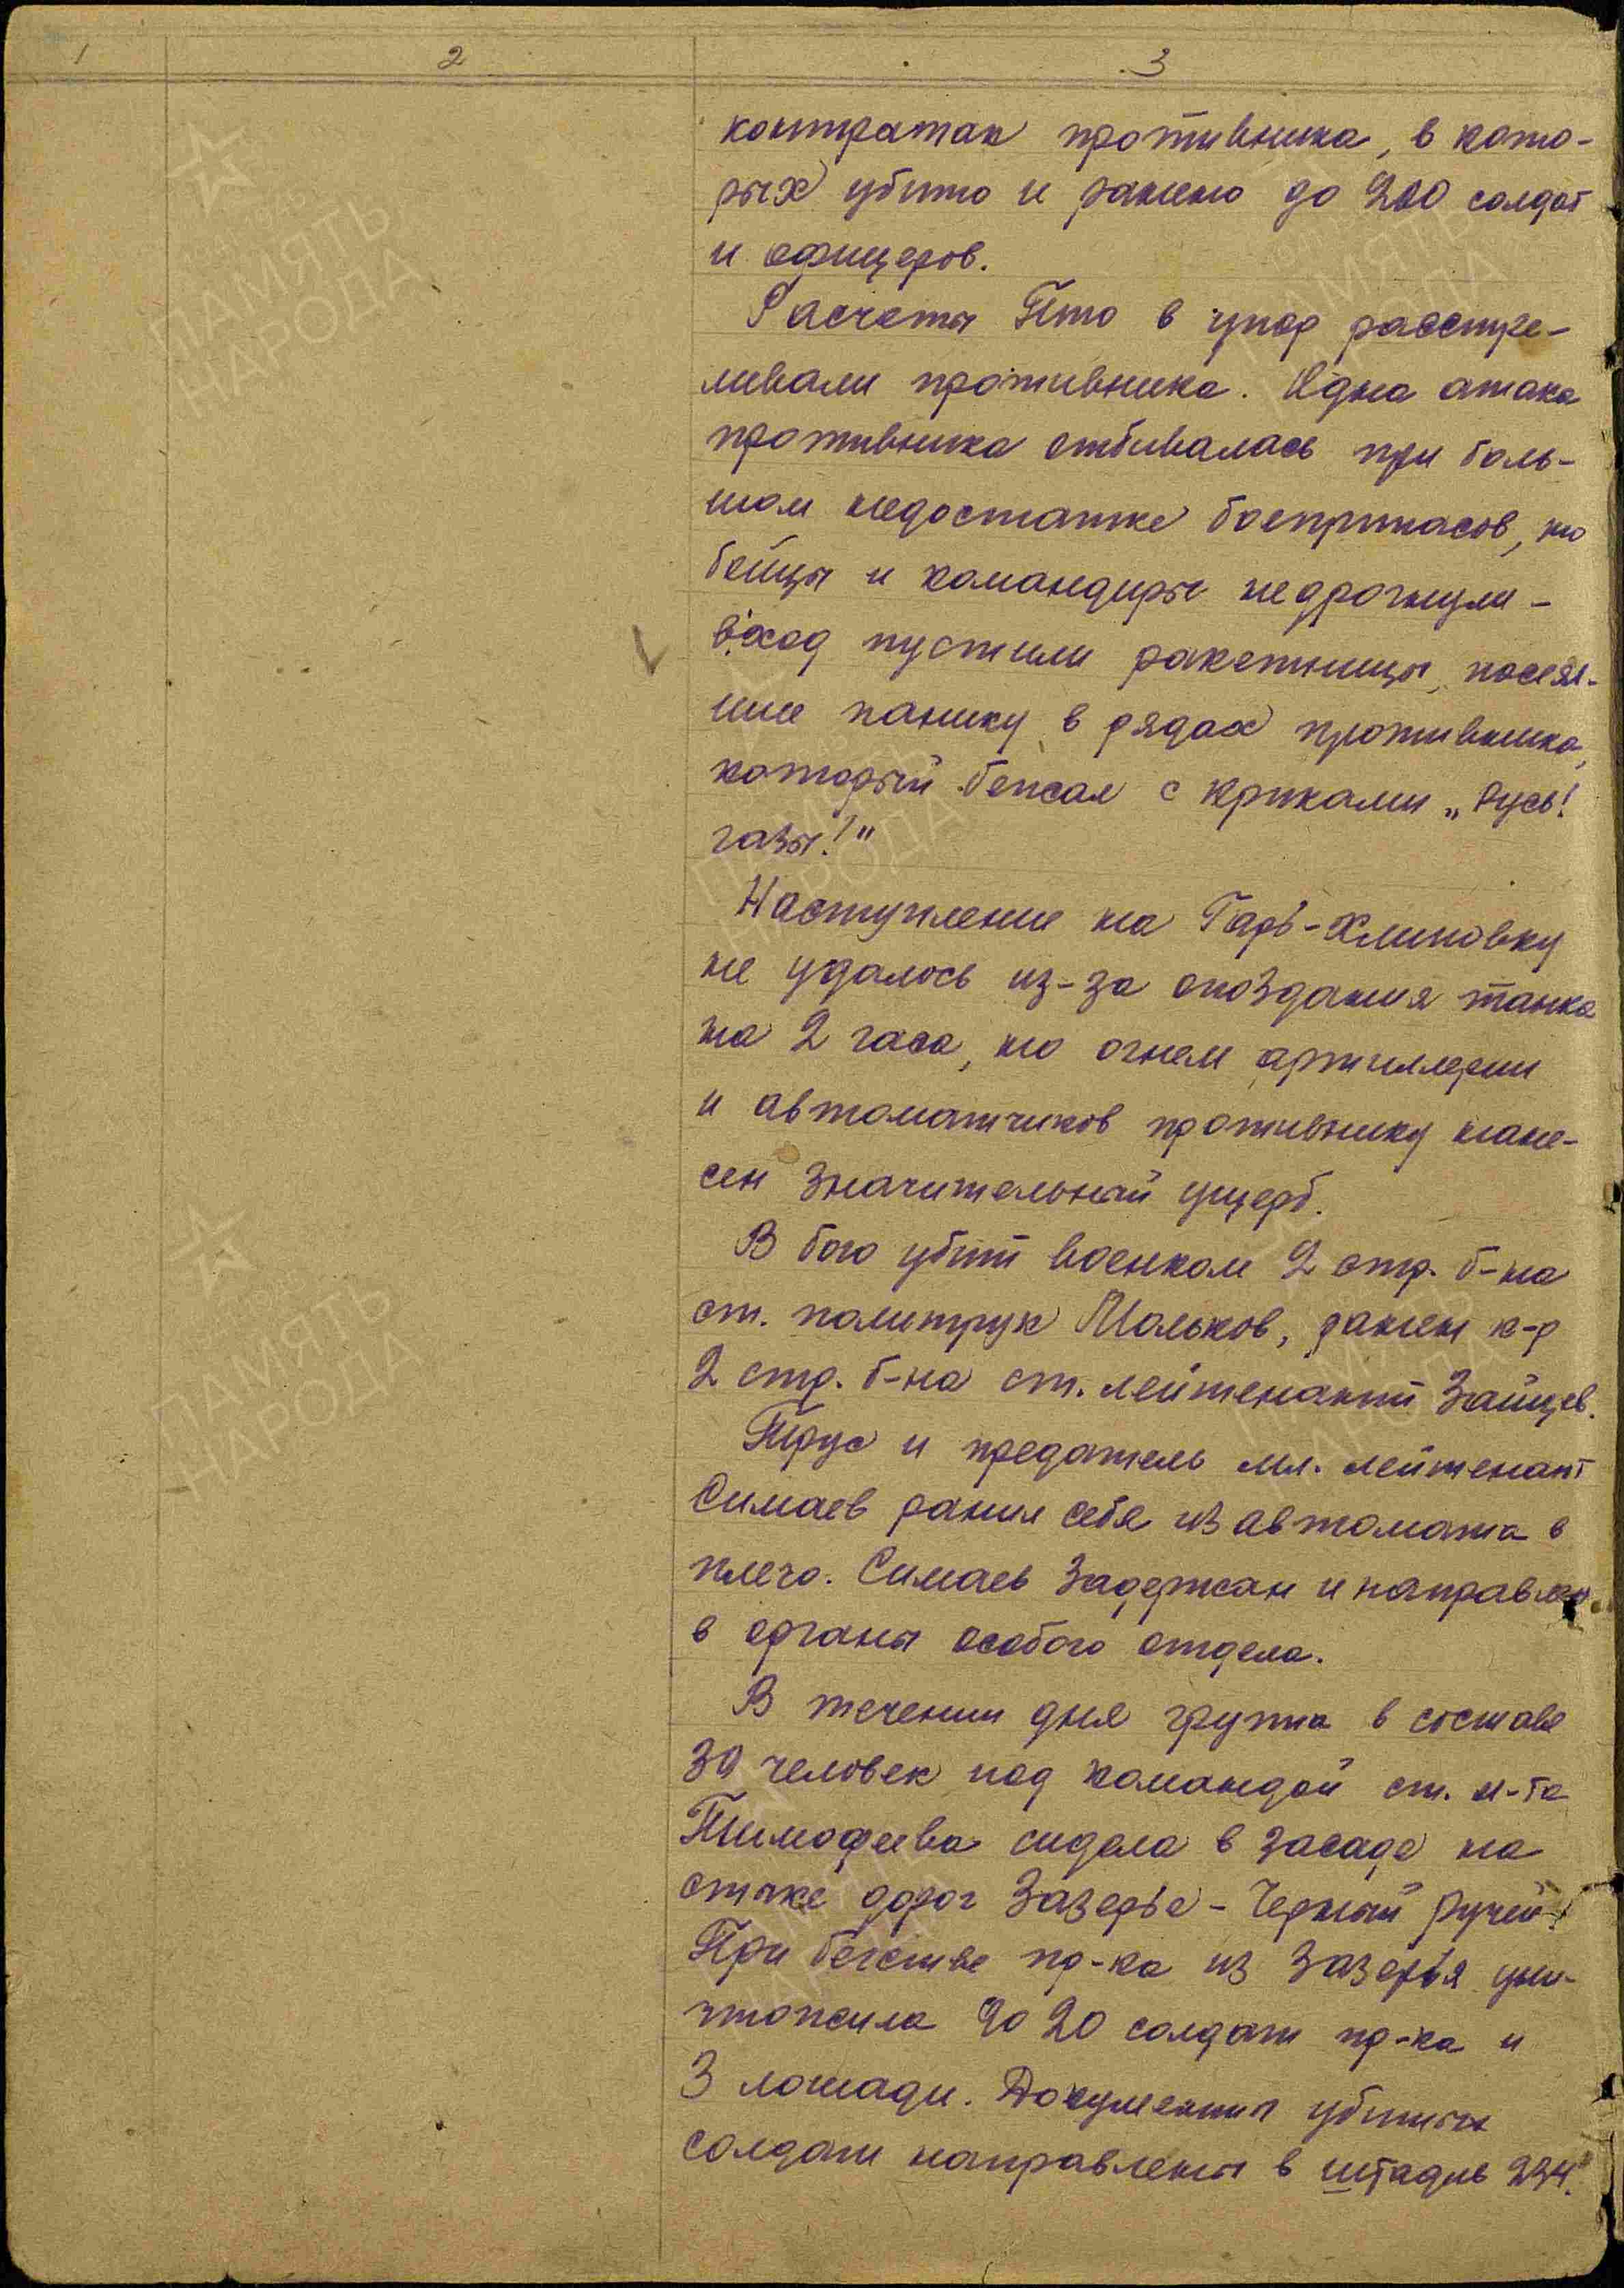 1 2 3
контратак противника, в кото-
рых убито и ранено до 200 солдат
и офицеров.
Расчеты ПТО в упор расстре-
ливали противника. Одна атака
противника отбивалась при боль-
шом недостатке боеприпасов, но
бойцы и командиры недрогнули -
в ход пустили ракетницы, посеяв-
шие панику в рядах противника,
который бежал с криками „Русь!
газы!"
Наступление на Гарь-Хлиповку
не удалось из-за опоздания танка
на 2 часа, но огнем артиллерии
и автоматчиков противнику нане-
сен значительный ущерб.
В бою убит военком 2 стр. б-на
ст. политрук Мальков, ранен к-р
2 стр. б-на ст. лейтенант Зайцев.
Трус и предатель мл. лейтенант
Симаев ранил себя из автомата в
плечо. Симаев задержан и направлен
в органы особого отдела.
В течении дня группа в составе
30 человек под командой ст. л-та
Тимофеева сидела в засаде на
стыке дорог Зазерье - Черный ручей.
При бегстве пр-ка из Зазерья уни-
чтожила до 20 солдат пр-ка и
3 лошади. Документы убитых
солдат направлены в штадив 234.
ПАМЯТЬ
НАРОДА
ПАМЯТЬ
НАРОДА